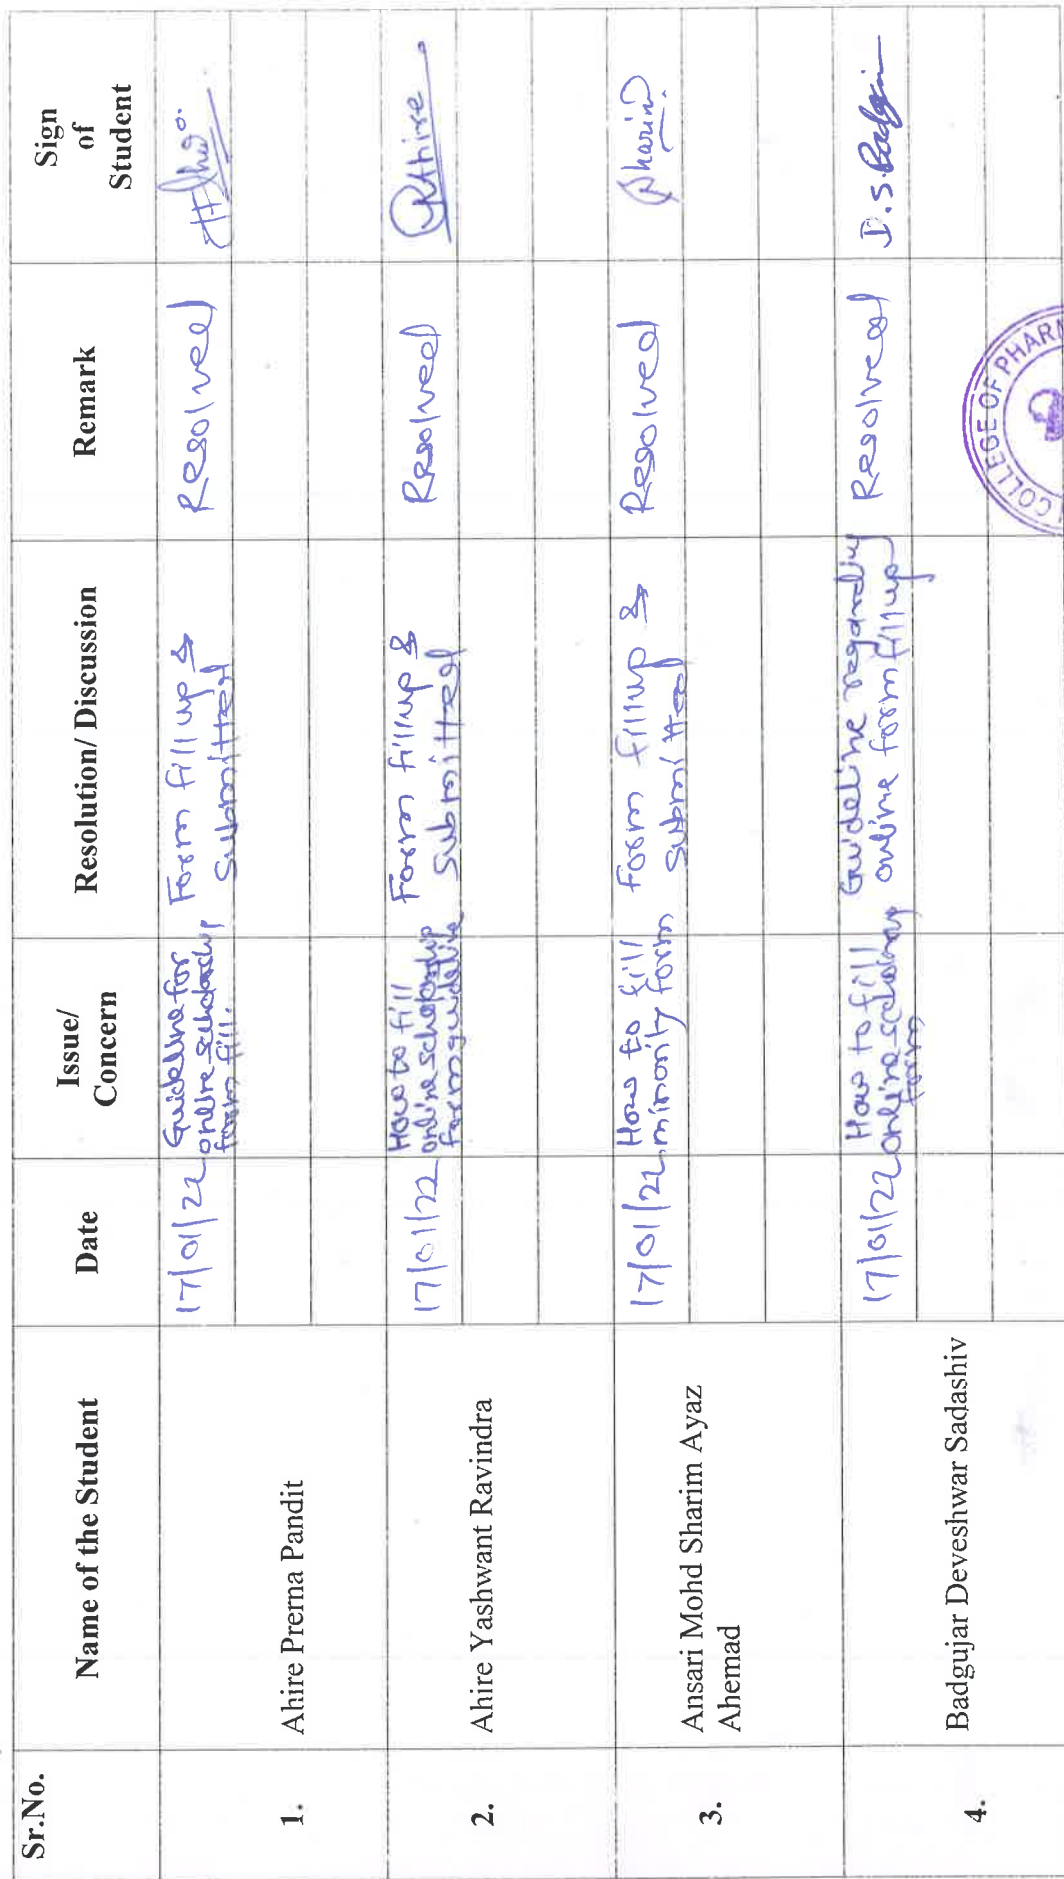 Sr.No.
Name of the Student
Date
Issue/
Concern
Resolution/ Discussion
Remark
Sign
of
Student
1.
Ahire Prerna Pandit
17/01/22
Guideline for
online scholarship
form fill.
Form fill up &
Submitted
Resolved
2.
Ahire Yashwant Ravindra
17/01/22
How to fill
online scholarship
form guideline
Form fill up &
Submitted
Resolved
YRAhire
3.
Ansari Mohd Sharim Ayaz
Ahemad
17/01/22
How to fill
minority form
Form fill up &
Submitted
Resolved
Sharim
4.
Badgujar Deveshwar Sadashiv
17/01/22
How to fill
online scholarship
form
Guideline regarding
online form fill up
Resolved
D.S.
COLLEGE OF PHARM